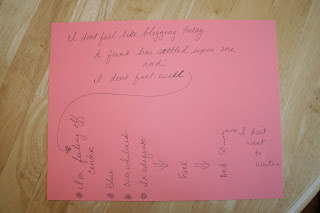 I dont feel like blogging today.
A funk has settled upon me
and
I don't feel well
I'm feeling off
center
Blue
overwhelmed
inadequate
Funk
And so
I dont
want
to
write.